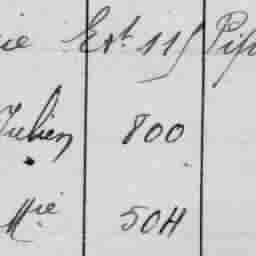 ie Ext. 115 Pip
Julien 800
Mie 504